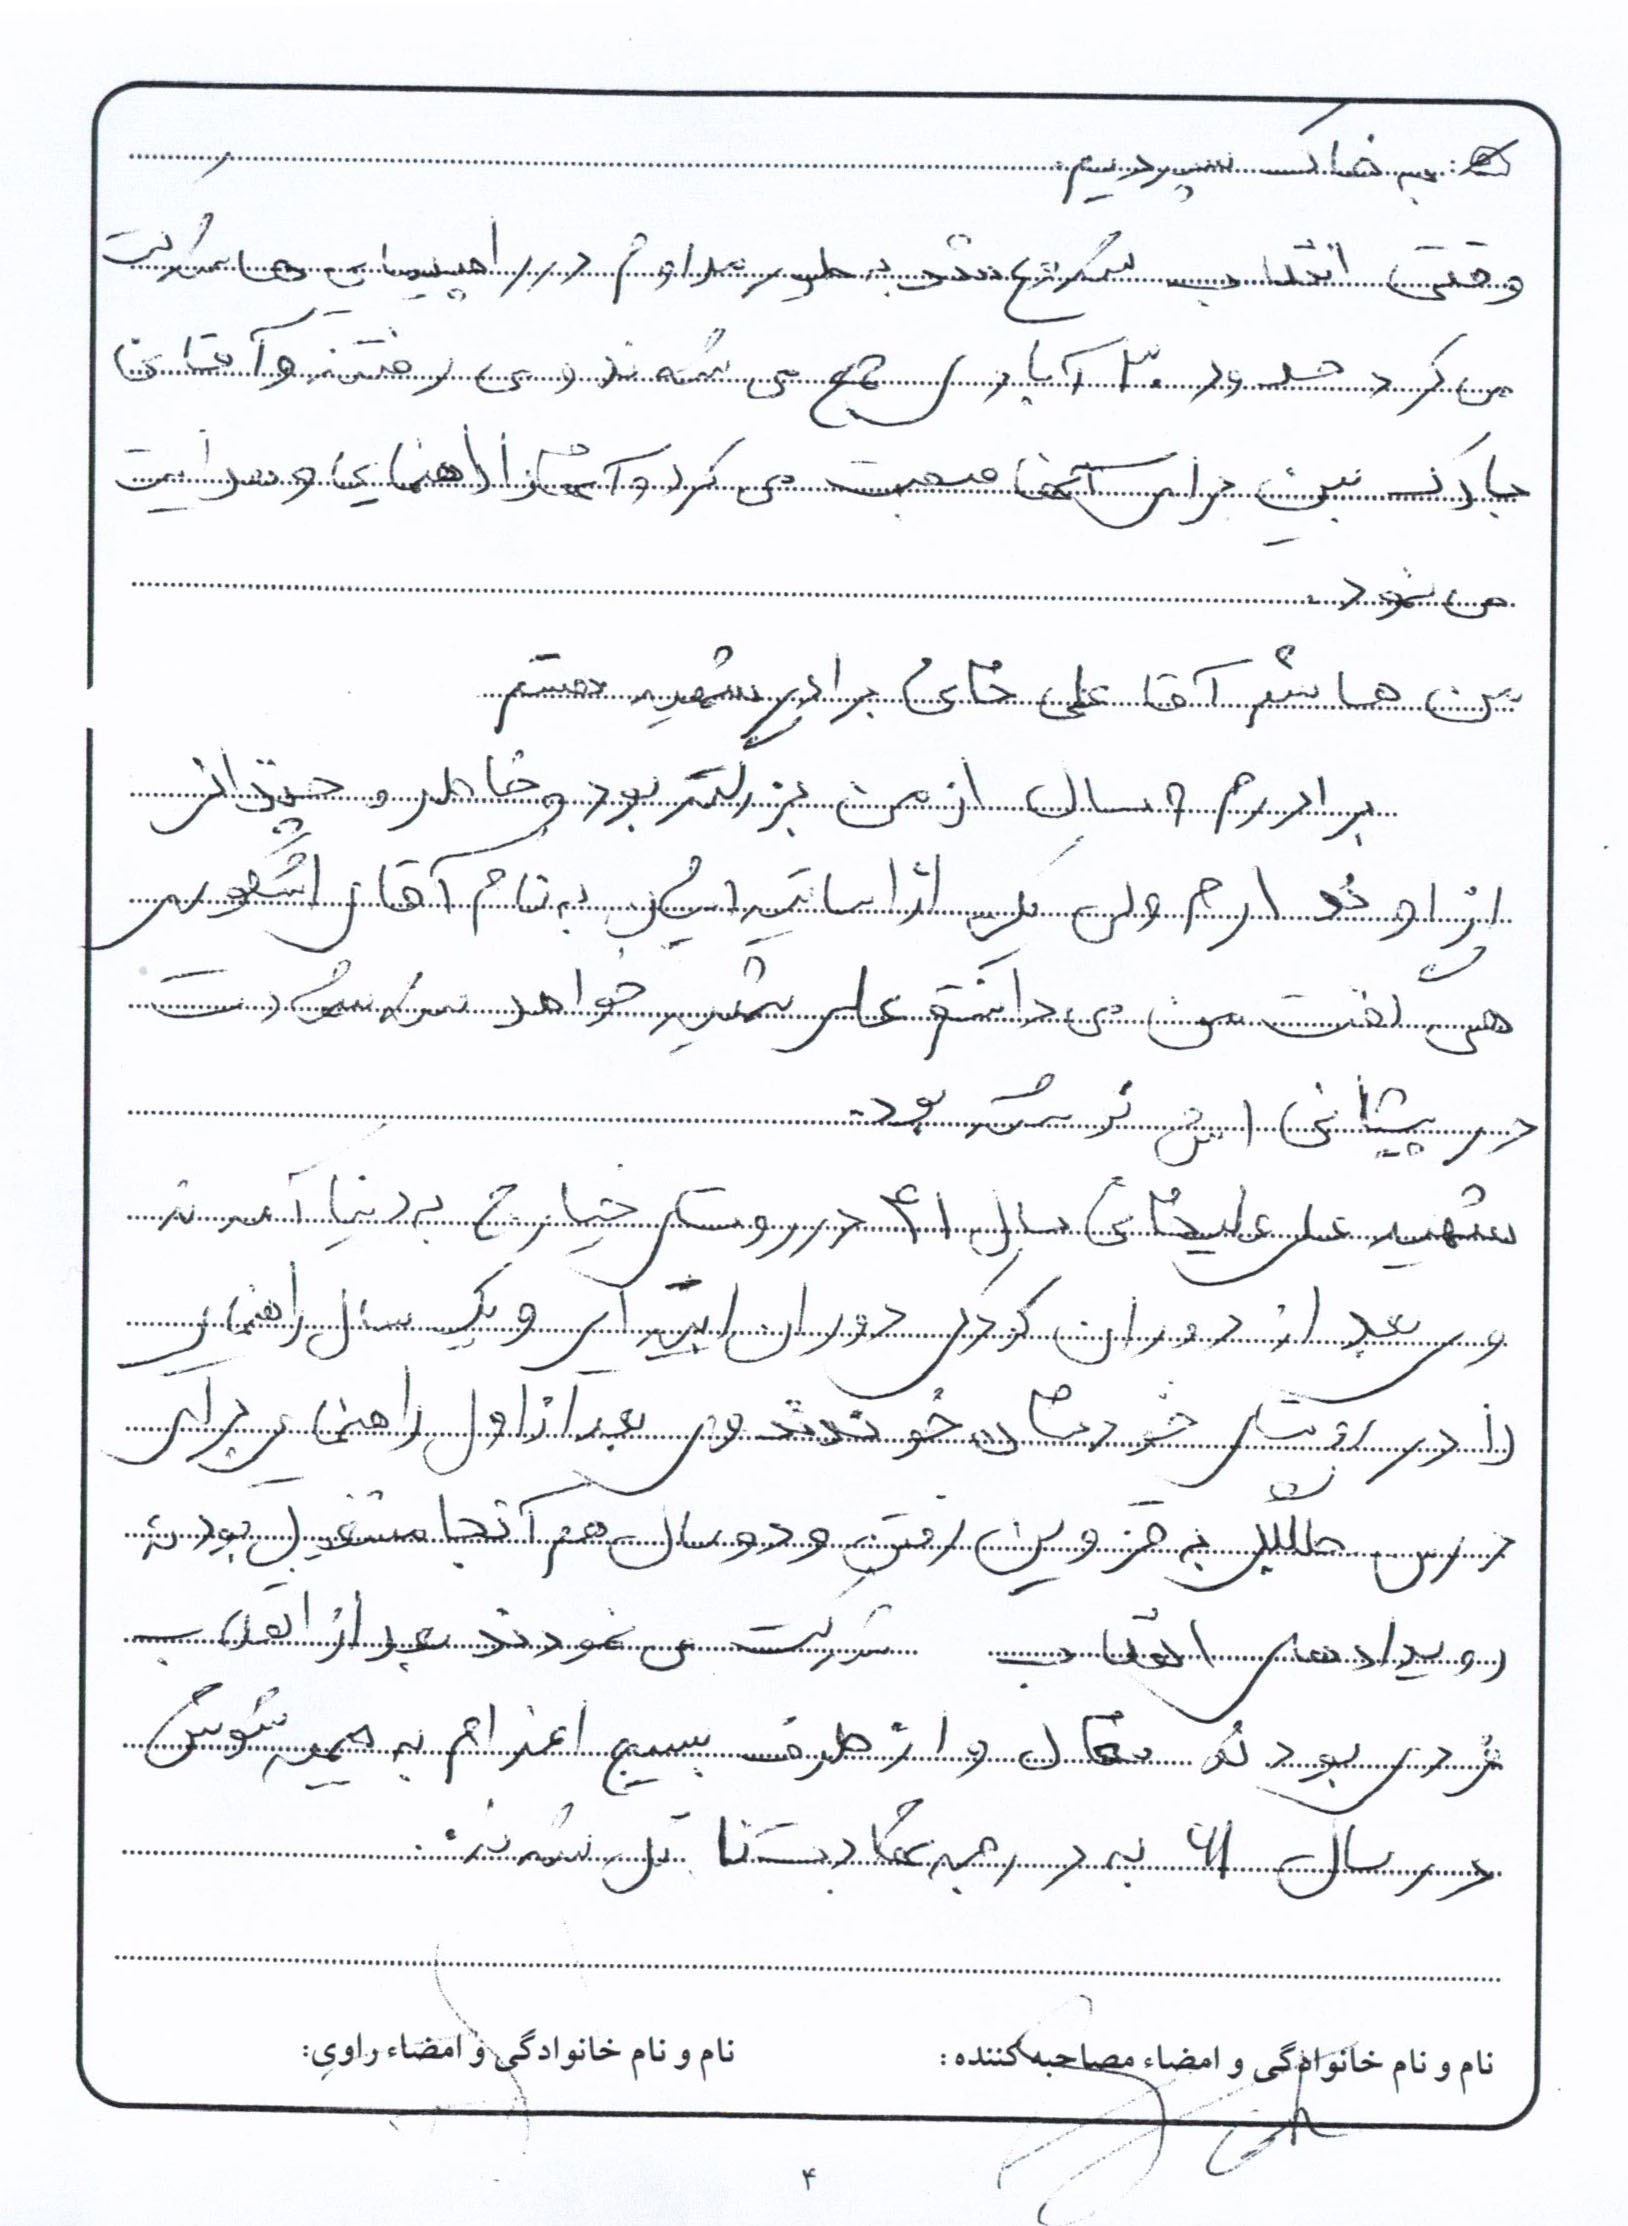 به خاک سپردیم.
وقتی انقلاب شروع شد به طور مداوم در راهپیمایی ها شرکت
می کرد حدود ۳۰ آبادی جمع می شدند و می رفتند و آقای
برای آنها صحبت می کرد و آنها را راهنمایی و هدایت
می نمود.
من هاشم آقا علی خانی برادر شهید هستم
برادرم ۸ سال از من بزرگتر بود و خاطره چندانی
از او ندارم ولی یکی از اساتید ایشان به نام آقای اشکوری
می گفت من می دانستم علی شهید خواهد شد شهادت
در پیشانی اش نوشته بود.
شهید علی علیخانی سال ۴۱ در روستای خیارج به دنیا آمدند
وی بعد از دوران کودکی دوران ابتدایی و یک سال راهنمایی
را در روستای خودشان خواندند وی بعد از اول راهنمایی برای
درس به قزوین رفتن و دو سال هم آنجا مشغول بودند
رویدادهای انقلاب شرکت می نمودند بعد از انقلاب
فردی بودند فعال و از طرف بسیج اعزام به جبهه شوش
در سال ۶۱ به درجه شهادت نائل شدند.
نام و نام خانوادگی و امضاء مصاحبه کننده: نام و نام خانوادگی و امضاء راوی:
۴